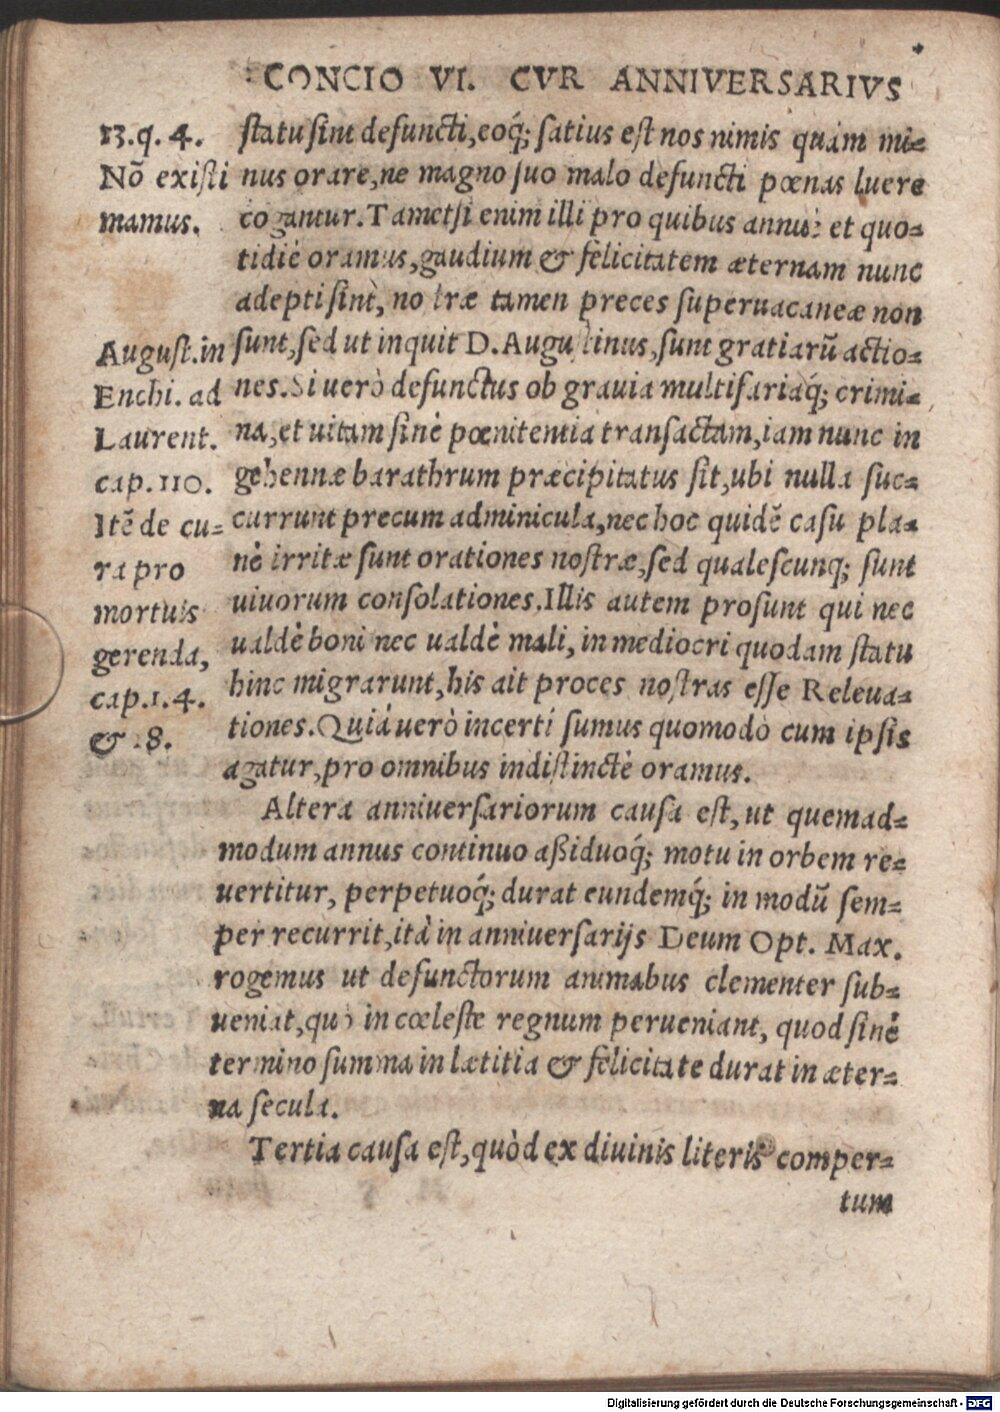 CONCIO VI. CVR ANNIVERSARIVS
13. q. 4.
Nō existi
mamus.
August. in
Enchi. ad
Laurent.
cap. 110.
Itē de cu-
ra pro
mortuis
gerenda,
cap. 1. 4.
& 18.
statu sint defuncti, eoq́; satius est nos nimis quàm mi-
nus orare, ne magno suo malo defuncti pœnas luere
cogantur. Tametsi enim illi pro quibus annuè et quo-
tidiè oramus, gaudium & felicitatem æternam nunc
adepti sint, nostræ tamen preces superuacaneæ non
sunt, sed ut inquit D. Augustinus, sunt gratiarū actio-
nes. Si uerò defunctus ob grauia multifariaq́; crimi-
na, et uitam sinè pœnitentia transactam, iam nunc in
gehennæ barathrum præcipitatus sit, ubi nulla suc-
currunt precum adminicula, nec hoc quidē casu pla-
nè irritæ sunt orationes nostræ, sed qualescunq; sunt
uiuorum consolationes. Illis autem prosunt qui nec
ualdè boni nec ualdè mali, in mediocri quodam statu
hinc migrarunt, his ait proces nostras esse Releua-
tiones. Quià uerò incerti sumus quomodo cum ipsis
agatur, pro omnibus indistinctè oramus.
Altera anniuersariorum causa est, ut quemad-
modum annus continuo aßiduoq́; motu in orbem re-
uertitur, perpetuoq́; durat eundemq́; in modū sem-
per recurrit, ità in anniuersarijs Deum Opt. Max.
rogemus ut defunctorum animabus clementer sub-
ueniat, quò in cœleste regnum perueniant, quod sinè
termino summa in lætitia & felicitate durat in æter-
na secula.
Tertia causa est, quòd ex diuinis literis comper-
tum
Digitalisierung gefördert durch die Deutsche Forschungsgemeinschaft - DFG